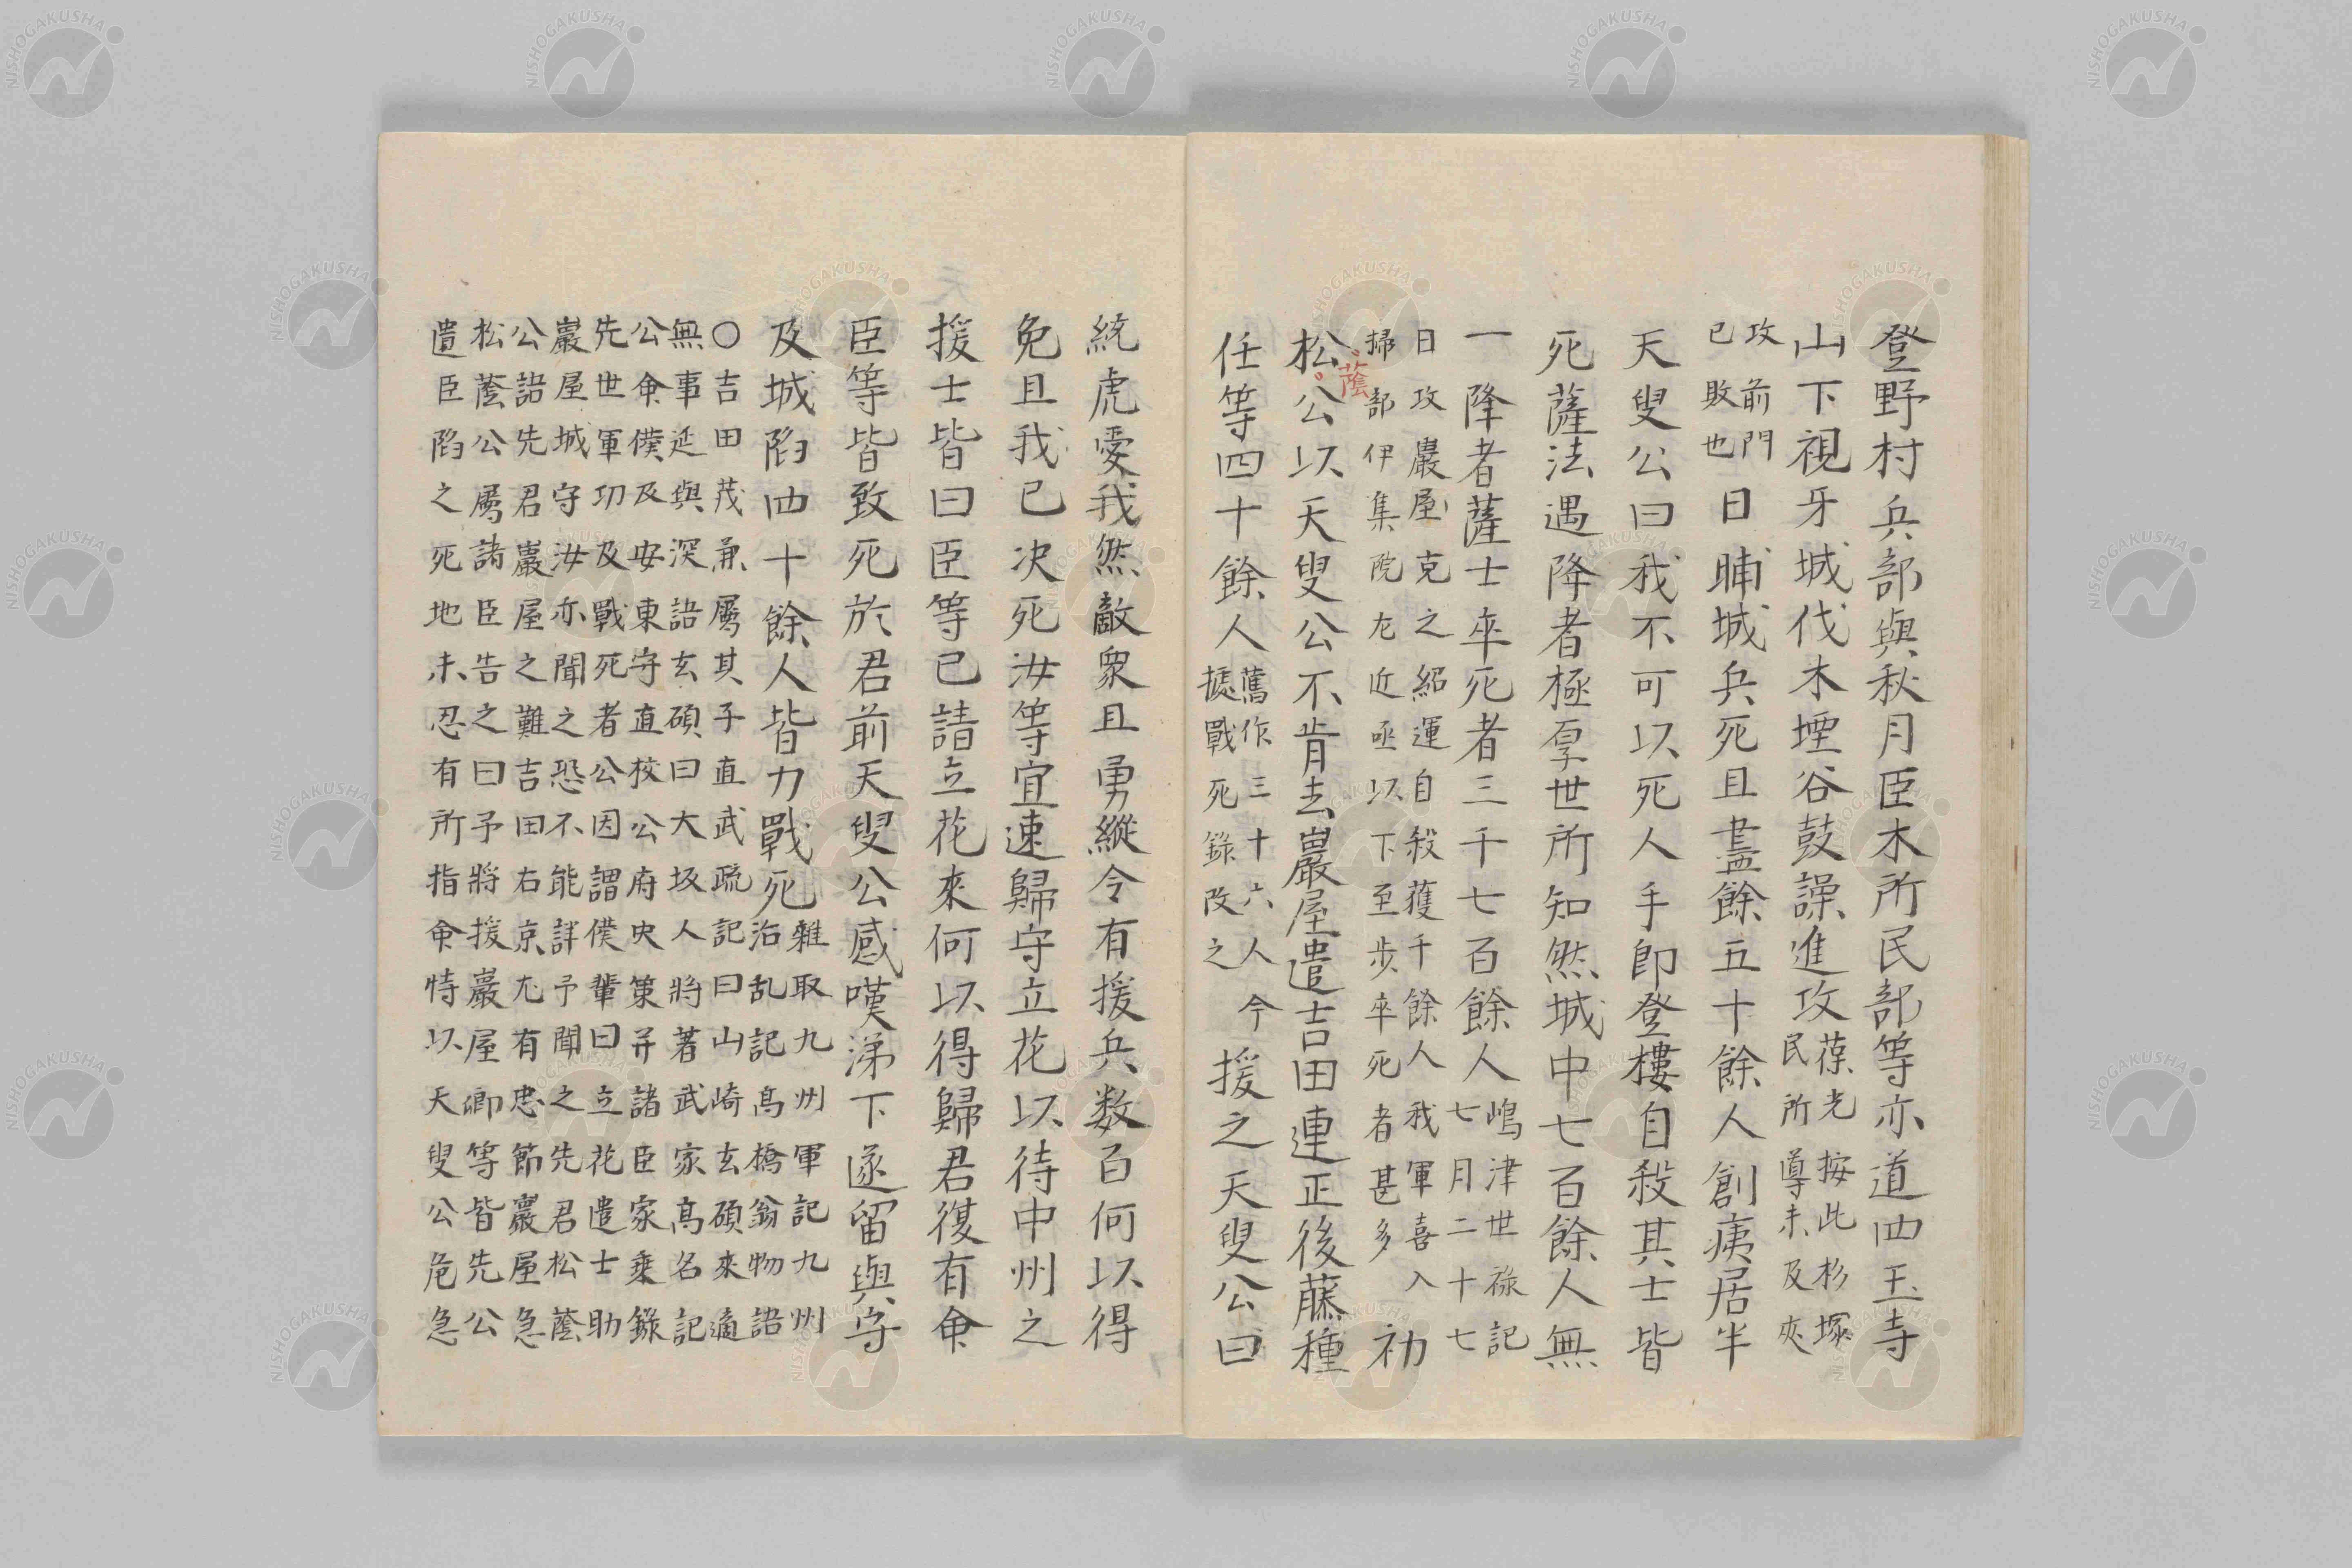 登野村兵部與秋月臣木所民部等亦道四王寺
山下視牙城伐木堙谷鼓譟進攻
葆光按此杉塚
民所導未及夾
攻前門
已敗也
日晡城兵死且盡餘五十餘人創痍居半
天叟公曰我不可以死人手即登樓自殺其士皆
死薩法遇降者極厚世所知然城中七百餘人無
一降者薩士卒死者三千七百餘人
嶋津世祿記
七月二十七
日攻巖屋克之紹運自殺獲千餘人我軍喜入
掃部伊集院左近亟以下至步卒死者甚多
初
松公以天叟公不肯去巖屋遣吉田連正後藤種
蔭
任等四十餘人
舊作三十六人今
據戰死錄改之
援之天叟公曰
統虎愛我然敵衆且勇縱令有援兵数百何以得
免且我已決死汝等宜速歸守立花以待中州之
援士皆曰臣等已請立花來何以得歸君復有命
臣等皆致死於君前天叟公感嘆涕下遂留與守
及城陷四十餘人皆力戰死
雜取九州軍記九州
治乱記髙橋翁物語
〇吉田茂兼屬其子直武疏記曰山崎玄碩來適
無事延與深語玄碩曰大坂人將著武家髙名記
公命僕及安東守直校公府史策并諸臣家乗錄
先世軍功及戰死者公因謂僕輩曰立花遣士助
巖屋城守汝亦聞之恐不能詳予聞之先君松蔭
公語先君巖屋之難吉田右京尤有忠節巖屋急
松蔭公屬諸臣告之曰予將援巖屋卿等皆先公
遺臣陷之死地未忍有所指命特以天叟公危急